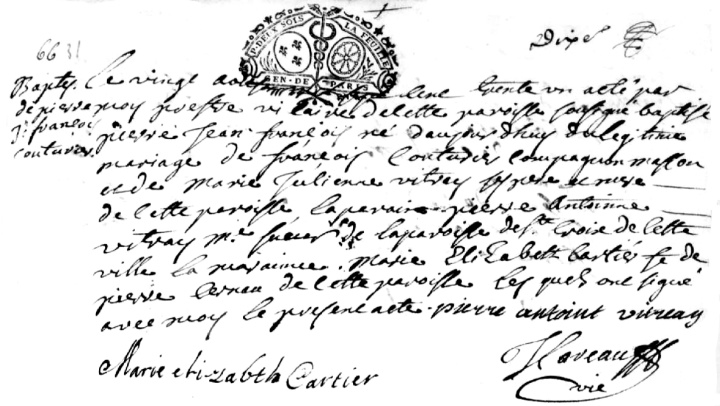 6631
P. DEUX SOLS LA FEUILLE
GEN-DE PARIS
Dixe
Baptes.
de pierre
J. françois
couturies.
Le vingt aout mil sept cent trente un a eté par
moy prestre vicaire de cette paroisse soussigné baptisé
pierre Jean françois né daujourdhuy du legitime
mariage de françois couturies compagnon masson
et de marie Julienne vitray ses pere et mere
de cette paroisse le parain pierre Antoinne
vitray me sueur de la paroisse de Ste Croix de cette
ville la maraine marie Elizabeth Cartier fe de
pierre de cette paroisse lesquels ont signé
avec moy le present acte. pierre antoint vitray
Marie elizabth Cartier
vic